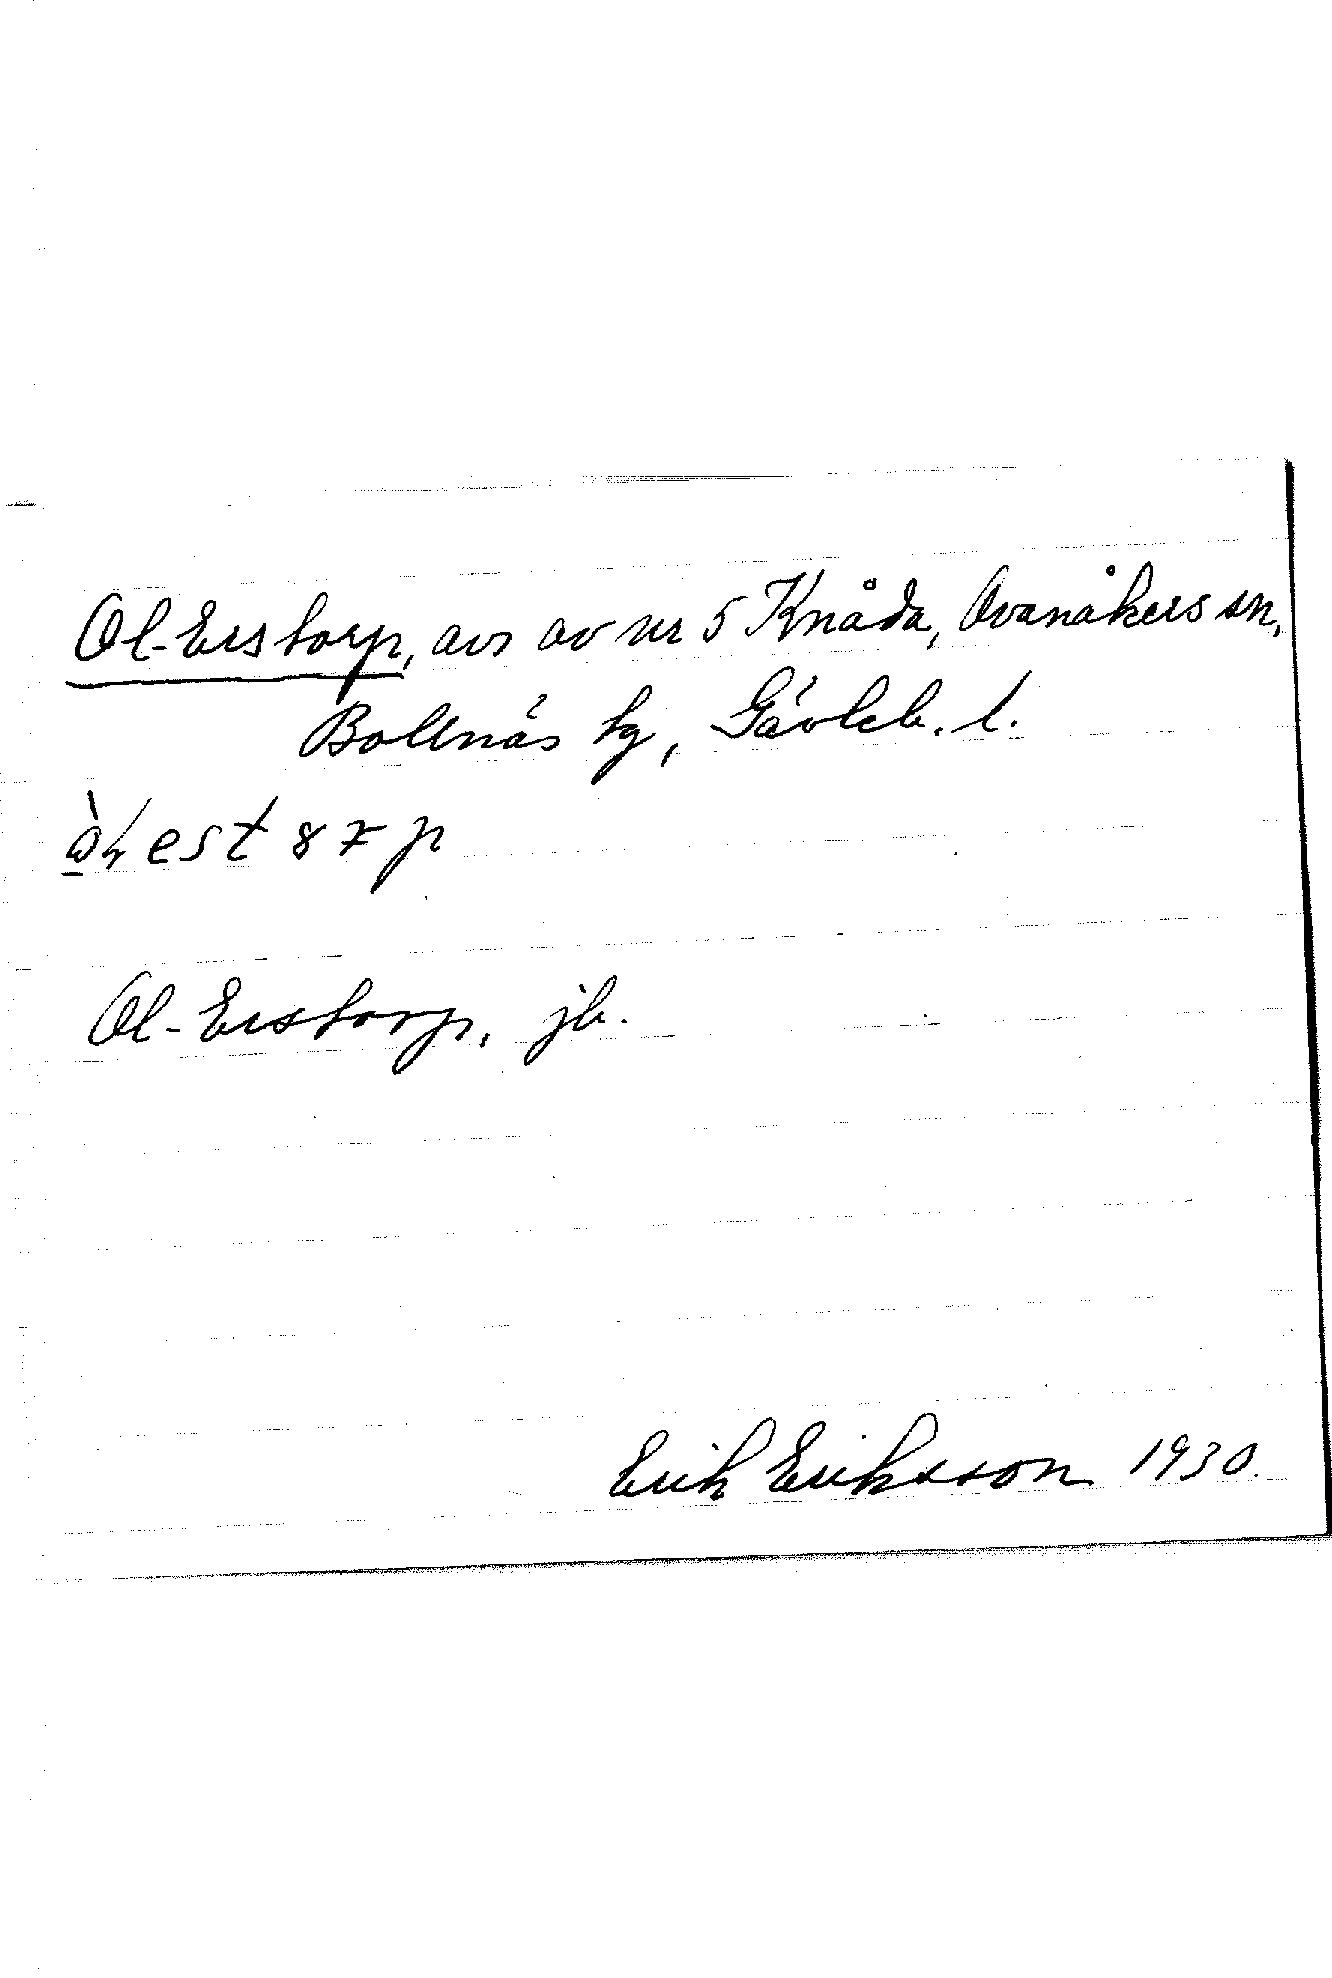 Ol-Erstorp, avs av nr 5 Knåda, Ovanåkers sn,
Bollnäs tg, Gävleb. l.
Ol-Erstorp, jb.
Erik Eriksson 1930.